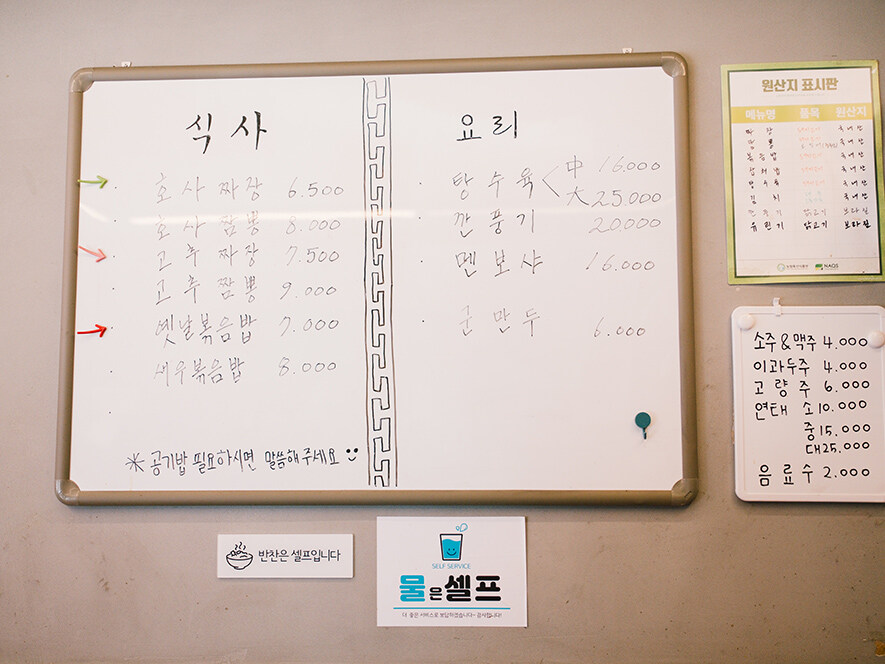 식사
호사짜장 6.500
호사짬뽕 8.000
고추짜장 7.500
고추짬뽕 9.000
옛날볶음밥 7.000
새우볶음밥 8.000
※ 공기밥 필요하시면 말씀해주세요
요리
탕수육 < 中 16.000
大 25.000
깐풍기 20000
멘보샤 16.000
군만두 6.000
원산지 표시판
메뉴명 품목 원산지
짜장 국내산
짬뽕 국내산
볶음밥 국내산
잡채밥 국내산
탕수육 국내산
김치 국내산
깐풍기 닭고기 브라질
유린기 닭고기 브라질
NAQS
소주&맥주 4.000
이과두주 4.000
고량주 6.000
연태 소 10.000
중 15.000
대 25.000
음료수 2.000
반찬은 셀프입니다
SELF SERVICE
물은 셀프
더 좋은 서비스로 보답하겠습니다~ 감사합니다!